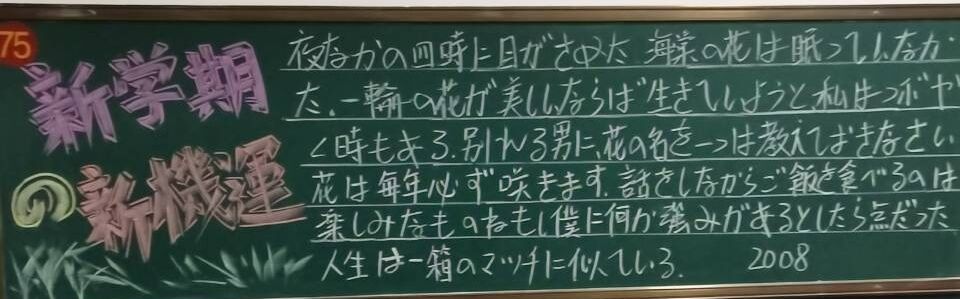 75
新学期
の新機運
夜なかの四時に目がさめた 海棠の花は眠っていなかっ
た.一輪の花が美しいならば生きていようと私はつボヤ
く時もある.別れる男に花の名を一つは教えておきなさい
花は毎年必ず咲きます.話をしながらご飯を食べるのは
楽しみなものねもし僕に何か強みがあるとしたら点だった
人生は一箱のマッチに似ている. 2008